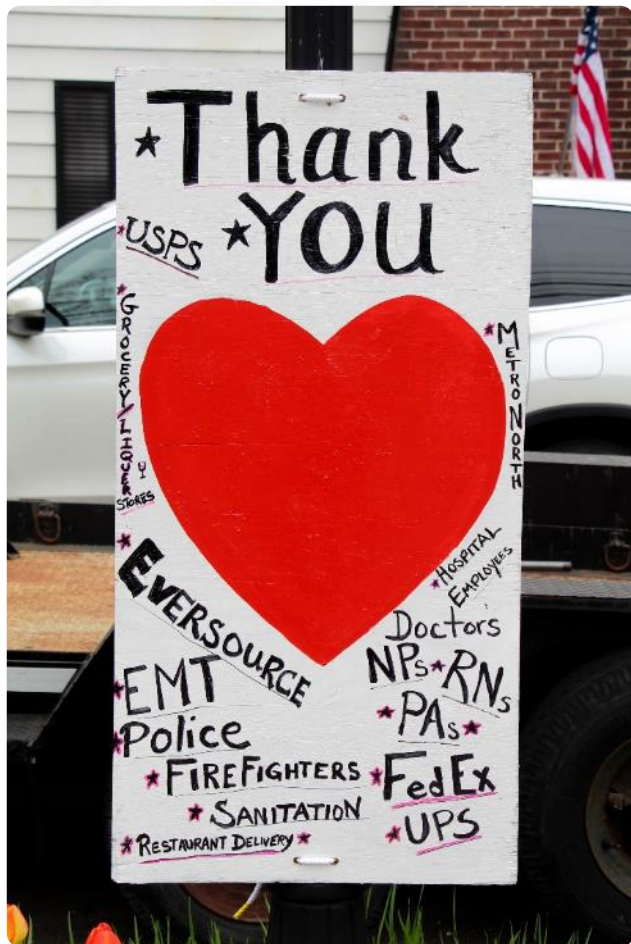 Thank
You
USPS
GROCERY/LIQUER
STORES
METRO NORTH
EVERSOURCE
HOSPITAL
EMPLOYEES
Doctors
NPs RNs
PAs
EMT
Police
FIREFIGHTERS
SANITATION
RESTAURANT DELIVERY
FedEx
UPS